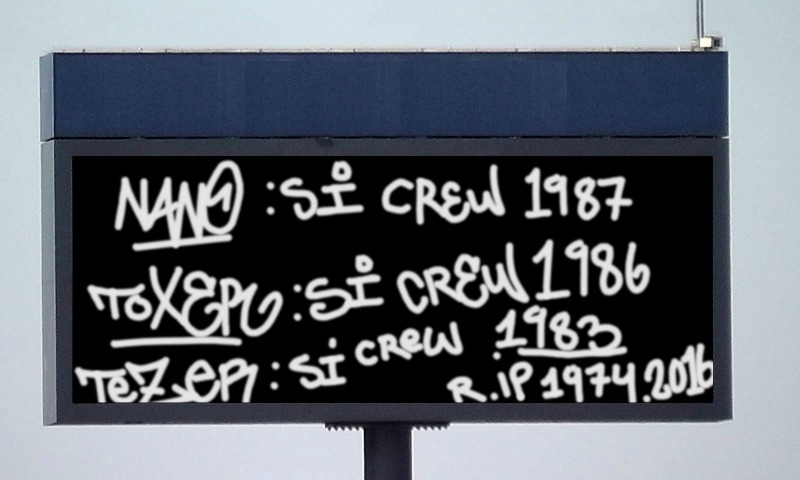 NANO : Si CREW 1987
TOXER : Si CREW 1986
TeZer : Si CReW 1983
R.iP 1974.2016